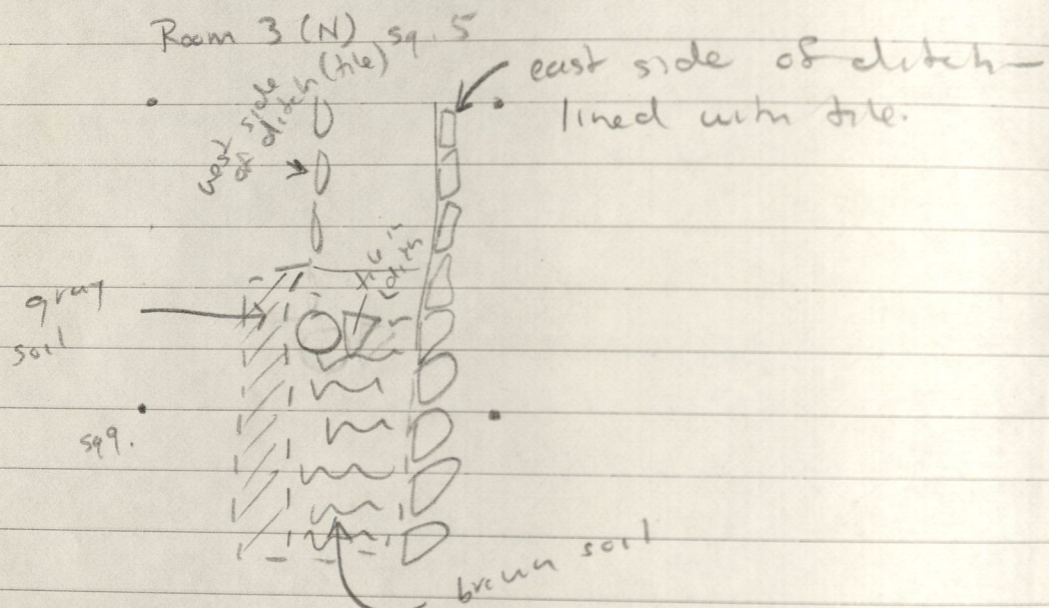 Room 3 (N) sq. 5
west side
of ditch (tile)
east side of ditch—
lined with tile.
tile in
ditch
gray
soil
sq 9.
brown soil